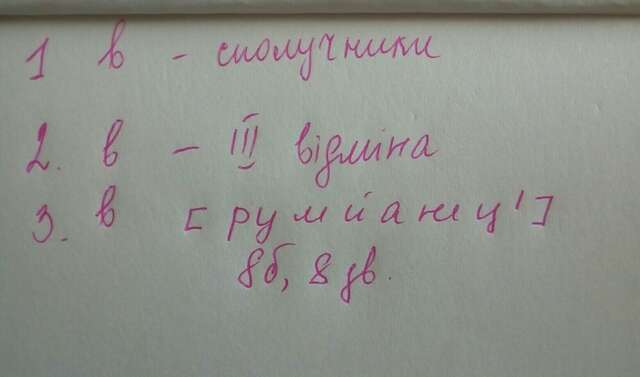 1 в - сполучники
2. в - III відміна
3. в [румйанец']
8б, 8 зв.